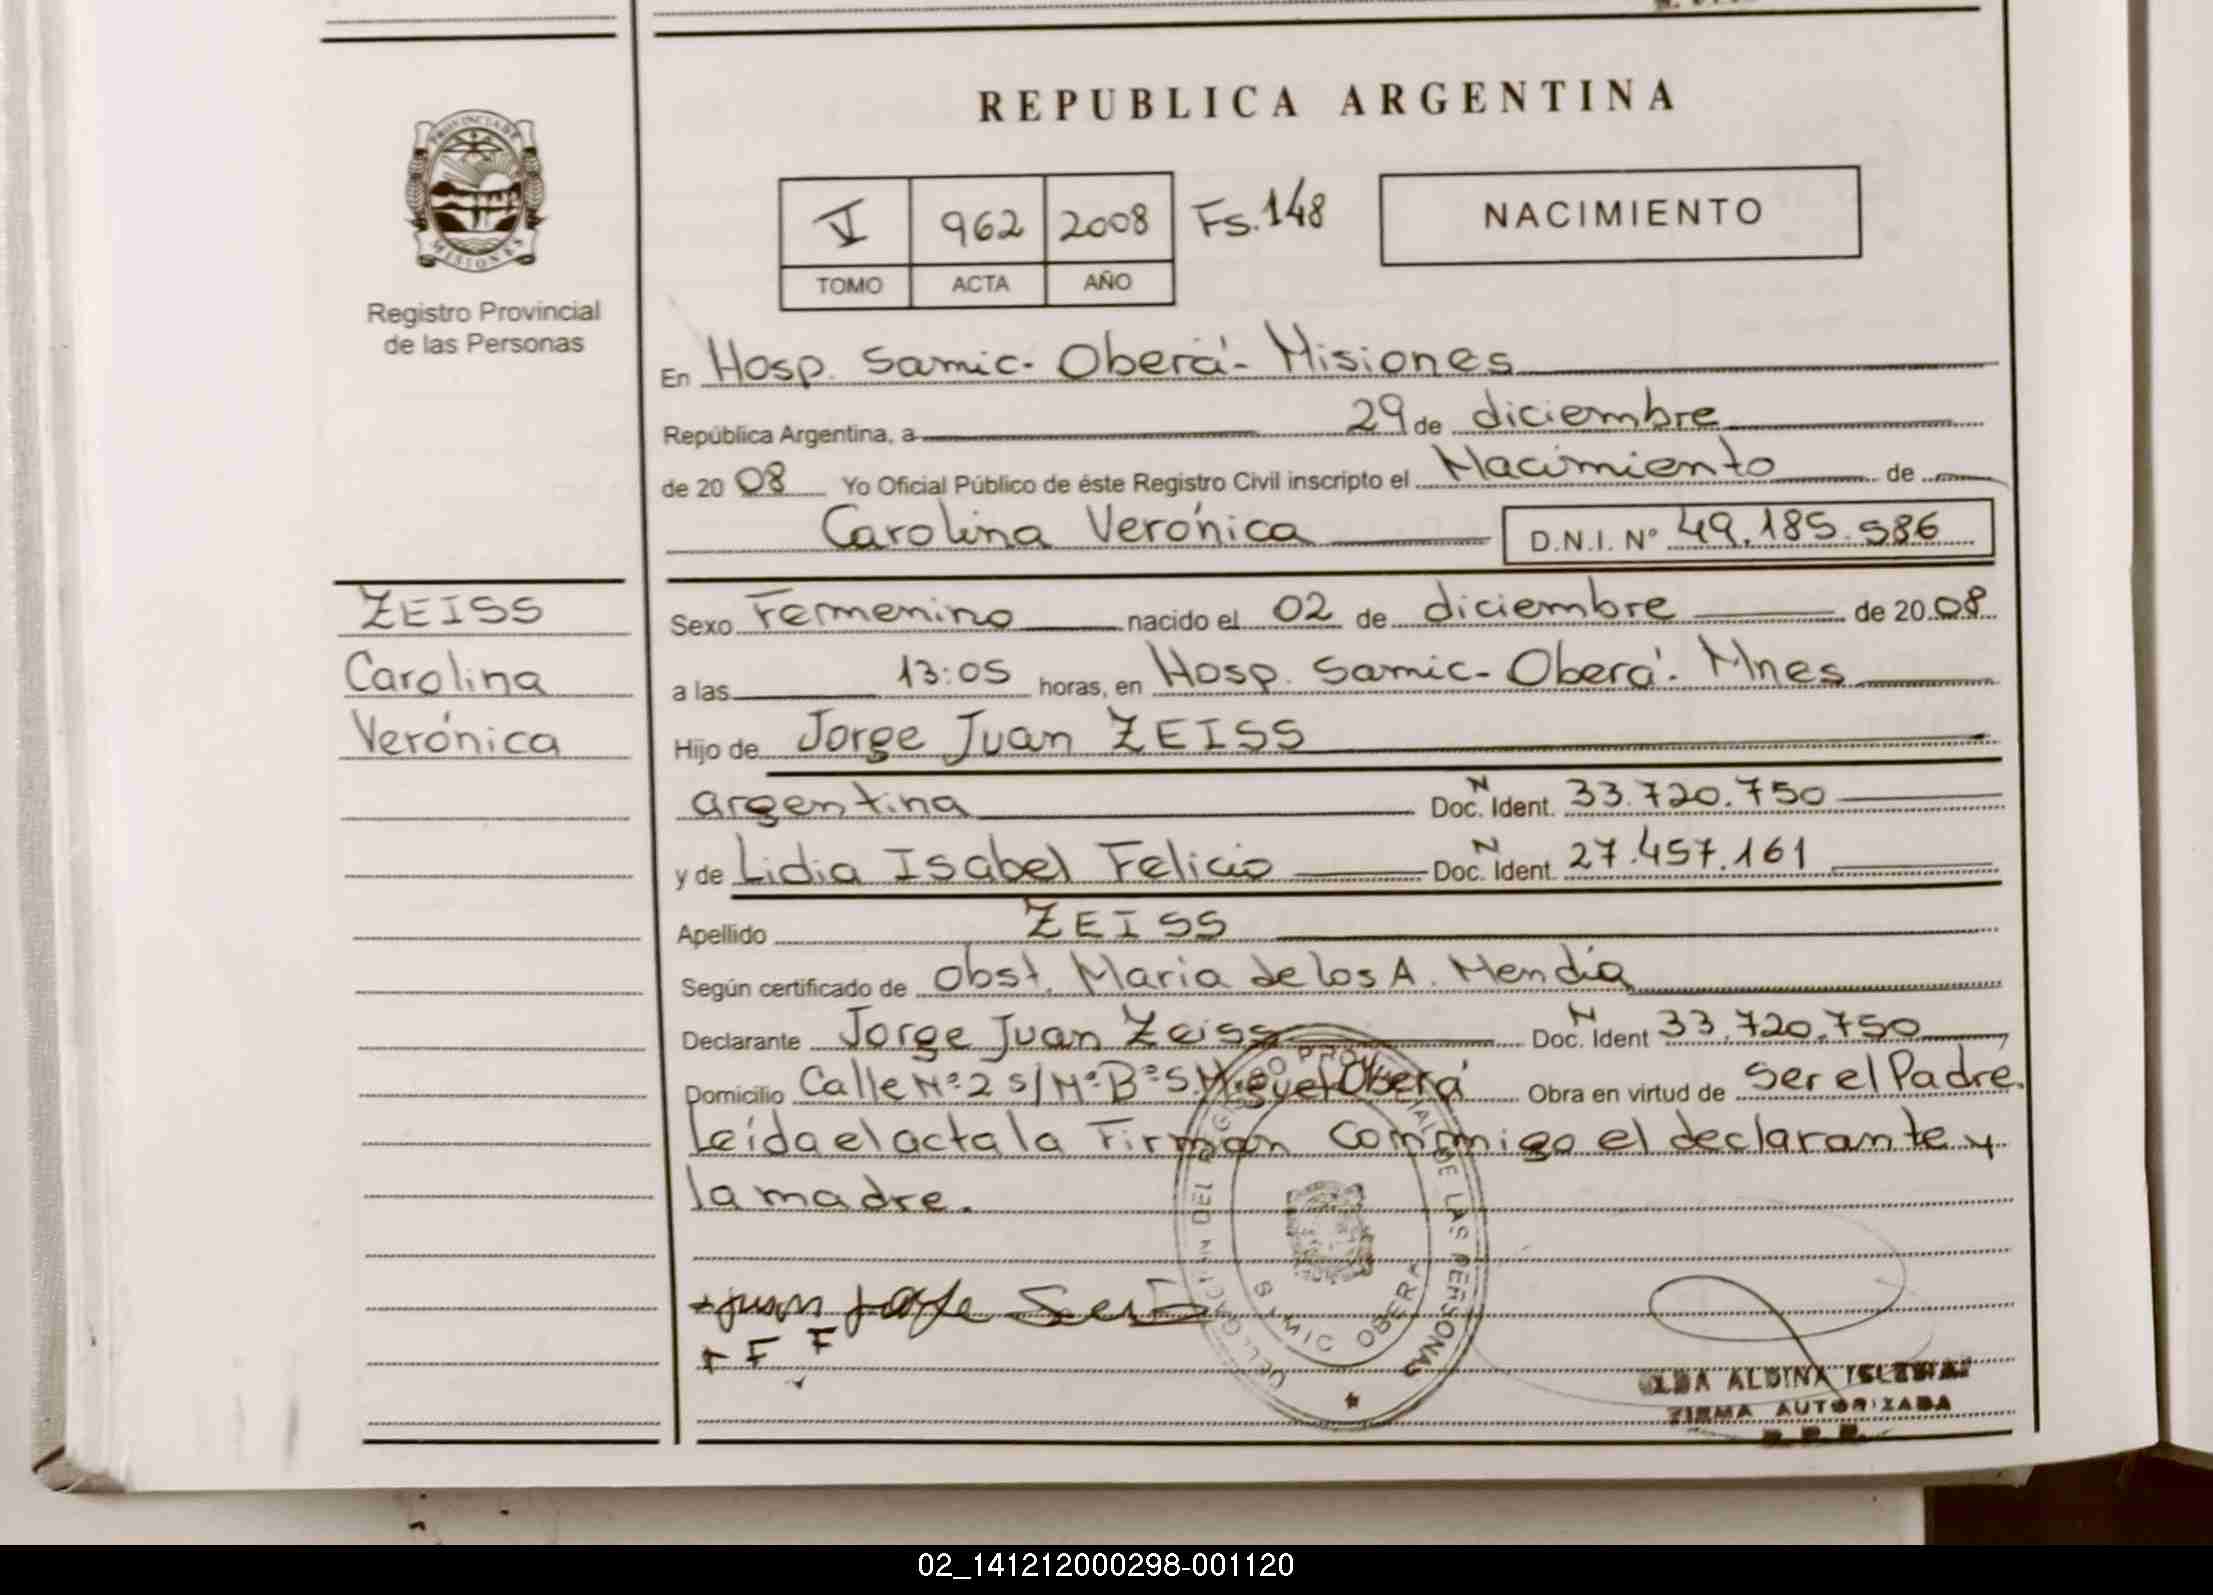 REPUBLICA ARGENTINA
PROVINCIA DE
MISIONES
Registro Provincial
de las Personas
V 962 2008 Fs. 148
TOMO ACTA AÑO
NACIMIENTO
En Hosp. Samic- Oberá- Misiones
República Argentina, a 29 de diciembre
de 2008 Yo Oficial Público de éste Registro Civil inscripto el Nacimiento de
Carolina Verónica D.N.I. Nº 49.185.586
ZEISS
Carolina
Verónica
Sexo Femenino nacido el 02 de diciembre de 2008
a las 13:05 horas, en Hosp. Samic- Oberá- Mnes
Hijo de Jorge Juan ZEISS
argentina Doc. N Ident. 33.720.750
y de Lidia Isabel Felicio Doc. N Ident. 27.457.161
Apellido ZEISS
Según certificado de Obst. Maria de los A. Mendía
Declarante Jorge Juan Zeiss Doc. N Ident 33.720.750
Domicilio Calle Nº2 s/Nº Bº S. Miguel Oberá Obra en virtud de ser el Padre.
Leída el acta la Firman conmigo el declarante y
la madre.
DELEGACION DEL REGISTRO PROVINCIAL DE LAS PERSONAS
SAMIC OBERA
+ F F
ALDINA
FIRMA AUTORIZADA
02_141212000298-001120